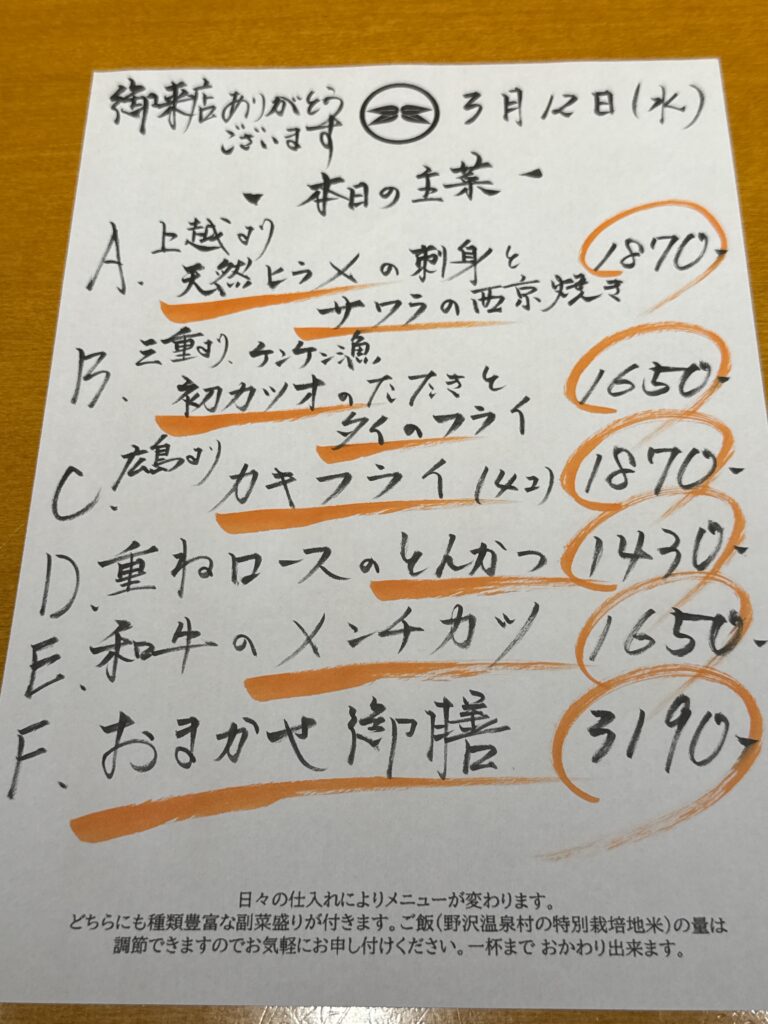 御来店ありがとう
ございます
3月12日(水)
本日の主菜
A. 上越より
天然ヒラメの刺身と
サワラの西京焼き
1870-
B. 三重より、ケンケン漁
初カツオのたたきと
タイのフライ
1650-
C. 広島より
カキフライ(4コ) 1870-
D. 重ねロースのとんかつ 1430-
E. 和牛のメンチカツ 1650-
F. おまかせ御膳 3190-
日々の仕入れによりメニューが変わります。
どちらにも種類豊富な副菜盛りが付きます。ご飯(野沢温泉村の特別栽培地米)の量は
調節できますのでお気軽にお申し付けください。一杯まで おかわり出来ます。